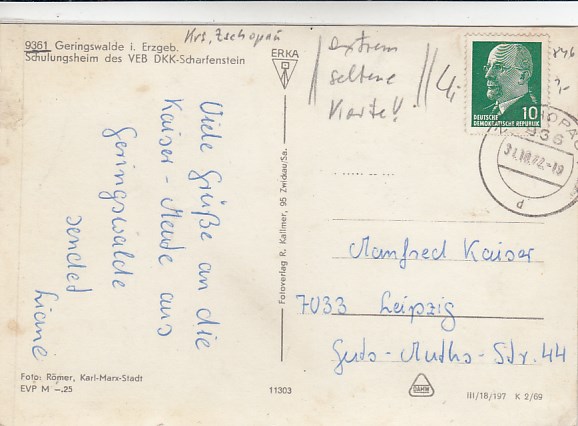 Krs. Zschopau
9361 Geringswalde i. Erzgeb.
Schulungsheim des VEB DKK-Scharfenstein
ERKA
extrem
seltene
Karte!!
DEUTSCHE
DEMOKRATISCHE REPUBLIK
10
936
31.10.72.-19
d
Viele Grüße an die
Kaiser-Meute aus
Geringswalde
sendet
Liane
Fotoverlag R. Kallmer, 95 Zwickau/Sa.
Manfred Kaiser
7033 Leipzig
Guts-Muths-Str. 44
Foto: Römer, Karl-Marx-Stadt
EVP M -.25
11303
DAHW
III/18/197 K 2/69